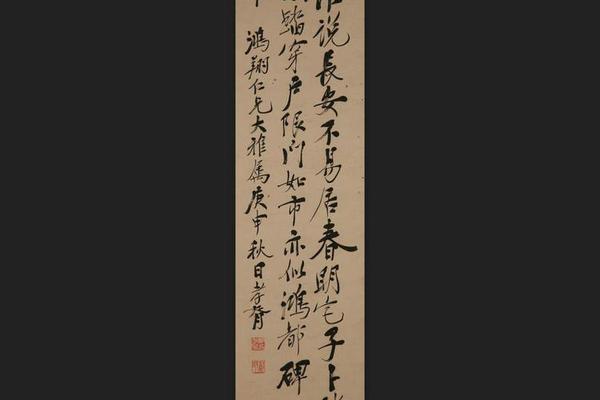 说長安不易居春明宅子卜
踏穿户限門如市亦似鴻都碑
鴻翔仁兄大雅属庚申秋日孝胥